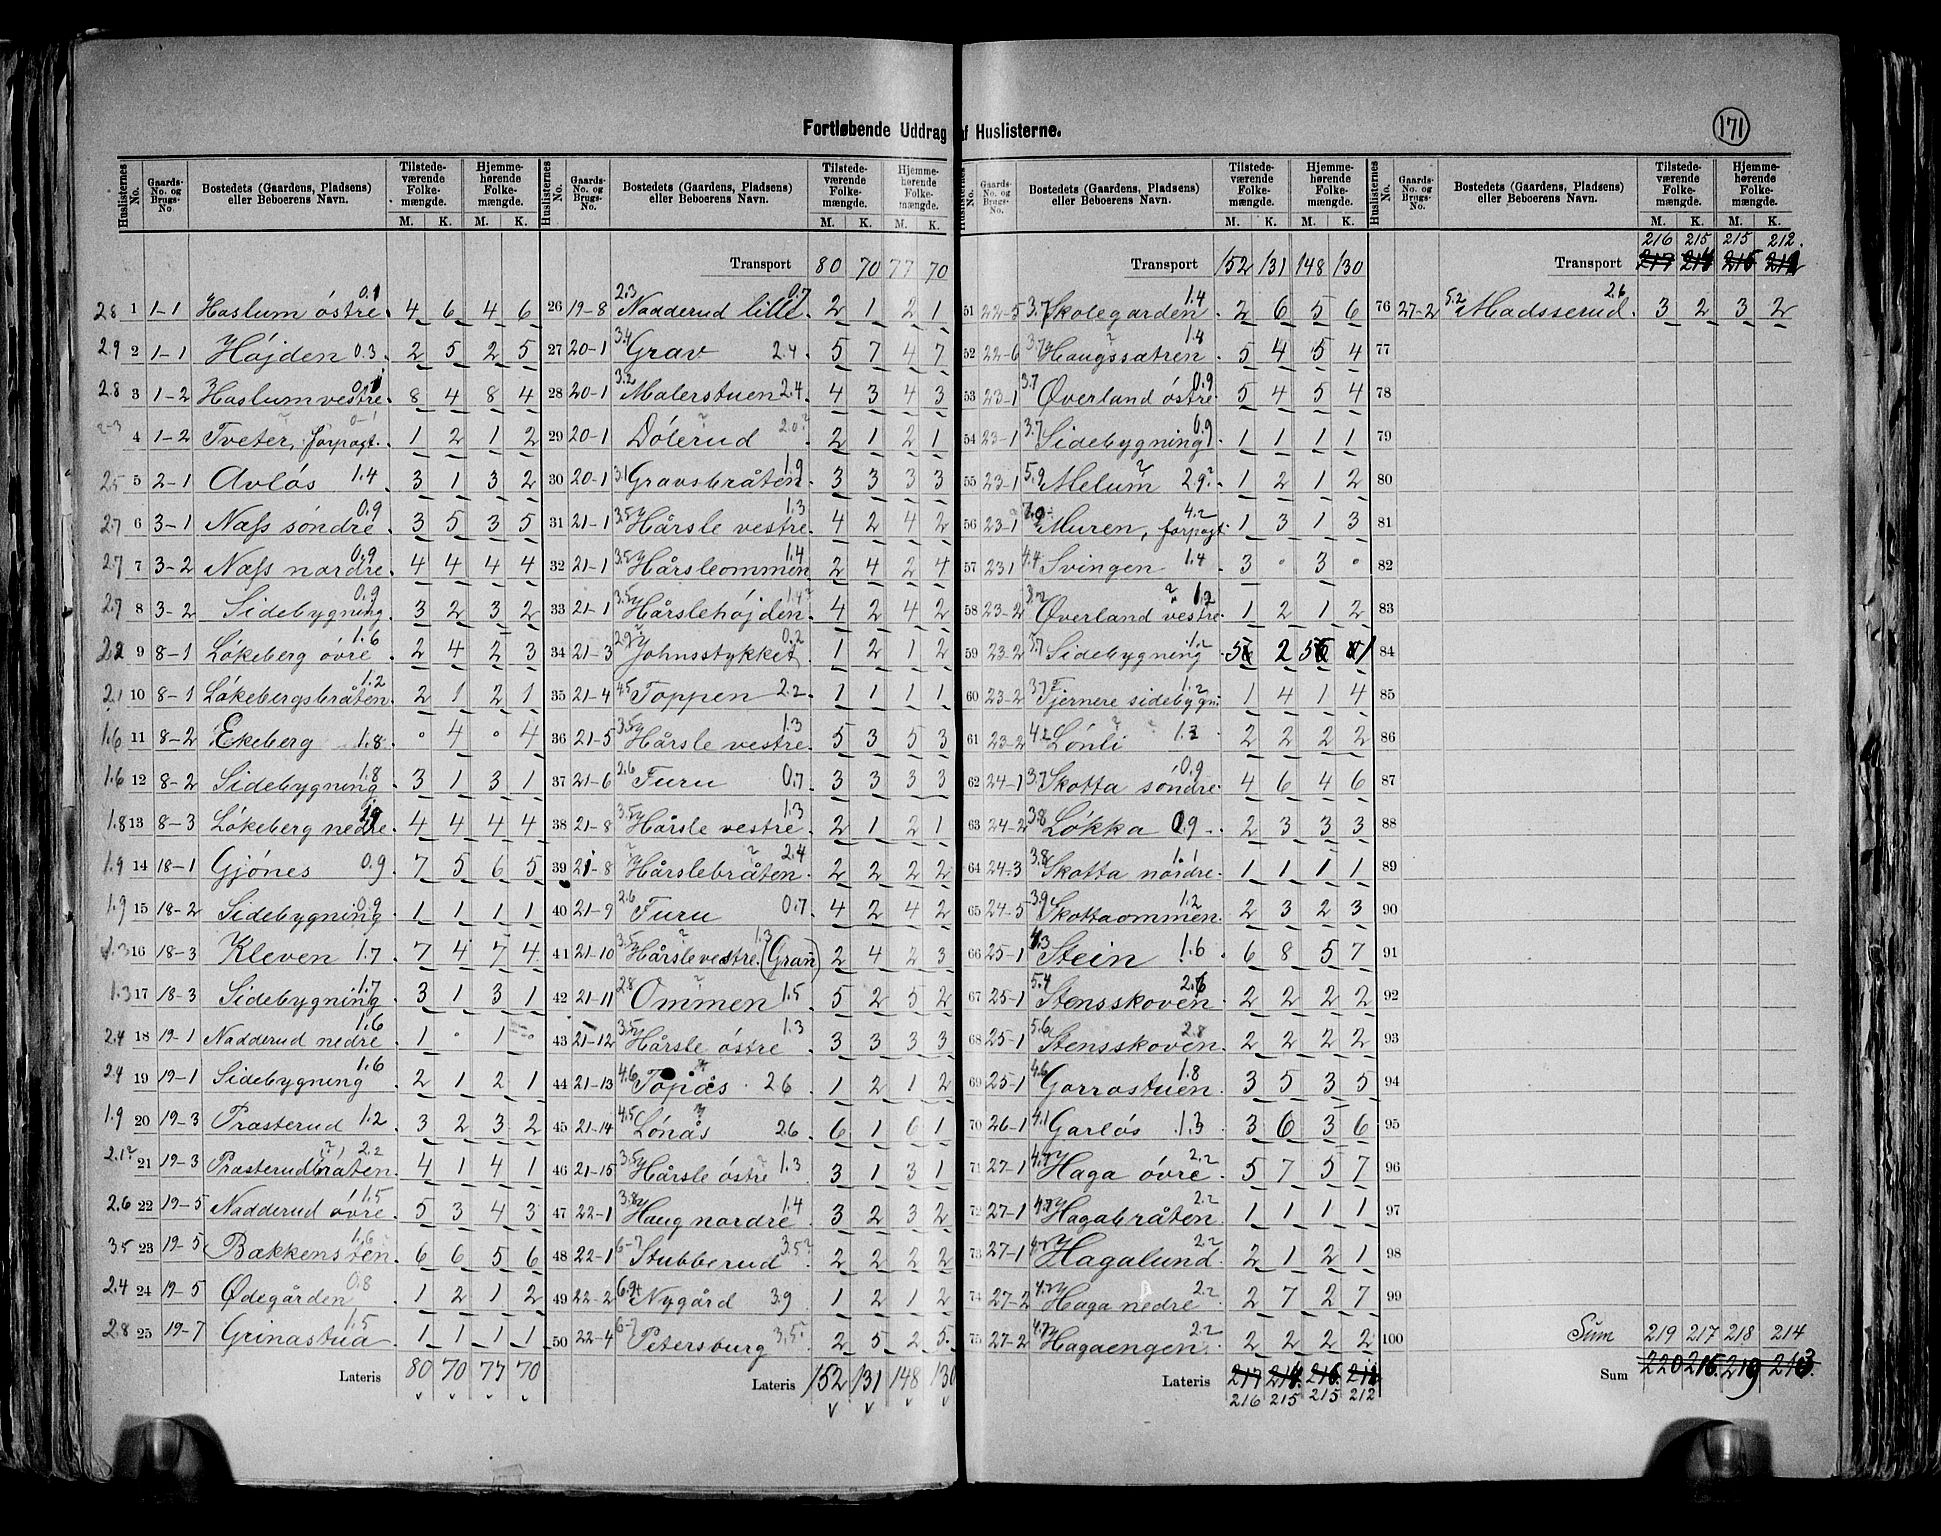 Fortløbende Uddrag af Huslisterne.
171
Huslisternes No. | Gaards-No. og Brugs-No. | Bostedets (Gaardens, Pladsens) eller Beboerens Navn. | Tilstedeværende Folkemængde. M. K. | Hjemmehørende Folkemængde. M. K.
28 1 1-1 Haslum östre 0.1 4 6 4 6
2.9 2 1-1 Højden 0.3 2 5 2 5
2.8 3 1-2 Haslum vestre 8 4 8 4
4 1-2 Tveter, forpagt. 1 2 1 2
25 5 2-1 Avlös 1.4 3 1 3 2
2.7 6 3-1 Næss söndre 0.9 3 5 3 5
2.7 7 3-2 Næss nordre 0.9 4 4 4 4
2.7 8 3-2 Sidebygning 0.9 3 2 3 2
2.2 9 8-1 Lökeberg övre 1.6 2 4 2 3
2.1 10 8-1 Lökebergsbråten 1.2 2 1 2 1
1.6 11 8-2 Ekeberg 1.8 • 4 • 4
1.6 12 8-2 Sidebygning 1.8 3 1 3 1
1.8 13 8-3 Lökeberg nedre 4 4 4 4
1.9 14 18-1 Gjönes 0.9 7 5 6 5
1.9 15 18-2 Sidebygning 0.9 1 1 1 1
1.3 16 18-3 Kleven 1.7 7 4 7 4
1.3 17 18-3 Sidebygning 1.7 3 1 3 1
2.4 18 19-1 Nadderud nedre 1.6 1 • 1 •
2.4 19 19-1 Sidebygning 1.6 2 1 2 1
1.9 20 19-3 Præsterud 1.2 3 2 3 2
2.1? 21 19-3 Præsterudbråten 2.2 4 1 4 1
2.6 22 19-5 Nadderud övre 1.5 5 3 4 3
3.5 23 19-5 Bækkensten 1.6 6 6 5 6
2.4 24 19-5 Ødegården 0.8 1 2 1 2
2.8 25 19-7 Grinastua 1.5 1 1 1 1
Lateris 80 70 77 70
Huslisternes No. | Gaards-No. og Brugs-No. | Bostedets (Gaardens, Pladsens) eller Beboerens Navn. | Tilstedeværende Folkemængde. M. K. | Hjemmehørende Folkemængde. M. K.
Transport 80 70 77 70
26 19-8 2.3 Nadderud lille 0.7 2 1 2 1
27 20-1 3.4 Grav 2.4 5 7 4 7
28 20-1 3.2 Malerstuen 2.4 4 3 4 3
29 20-1 Dölerud 2.0? 2 1 2 1
30 20-1 3.1 Gravsbråten 1.9 3 3 3 3
31 21-1 3.5 Hårsle vestre 1.3 4 2 4 2
32 21-1 3.5 Hårsleommen 1.4 2 4 2 4
33 21-1 3.5 Hårslehöjden 1.4? 4 2 4 2
34 21-3 2.2 Johnsstykket 0.2 1 2 1 2
35 21-4 4.5 Toppen 2.2 1 1 1 1
36 21-5 3.5 Hårsle vestre 1.3 5 3 5 3
37 21-6 2.6 Furu 0.7 3 3 3 3
38 21-8 3.5 Hårsle vestre 1.3 2 1 2 1
39 21-8 ? Hårslebråten 2.4 2 2 2 2
40 21-9 2.6 Furu 0.7 4 2 4 2
41 21-10 3.5 Hårslevestre (Gran) 1.3 2 4 2 3
42 21-11 2.8 Ommen 1.5 5 2 5 2
43 21-12 3.5 Hårsle östre 1.3 3 3 3 3
44 21-13 4.6 Topås 2.6 1 2 1 2
45 21-14 4.5 Lönås 2.6 6 1 6 1
46 21-15 3.5 Hårsle östre 1.3 3 1 3 1
47 22-1 3.8 Haug nordre 1.4 3 2 3 2
48 22-1 6-7 Stubberud 3.5? 2 2 2 2
49 22-2 6.9 Nygård 3.9 1 2 1 2
50 22-4 6-7 Petersburg 3.5? 2 5 2 5
Lateris 152 131 148 130
Huslisternes No. | Gaards-No. og Brugs-No. | Bostedets (Gaardens, Pladsens) eller Beboerens Navn. | Tilstedeværende Folkemængde. M. K. | Hjemmehørende Folkemængde. M. K.
Transport 152 131 148 130
51 22-5 3.7 Skolegården 1.4 2 6 5 6
52 22-6 3.7 Haugssætren 1.4 5 4 5 4
53 23-1 3.7 Øverland östre 0.9 5 4 5 4
54 23-1 3.7 Sidebygning 0.9 1 1 1 1
55 23-1 5.9 Melum 2.9? 1 2 1 2
56 23-1 Muren, forpagt. 4.2 1 3 1 3
57 23 1 4.4 Svingen 1.4 3 • 3 •
58 23-2 Øverland vestre 1.2 1 2 1 2
59 23-2 Sidebygning 1.2 5 2 5 1
60 23-2 3.7 Fjernere sidebygn. 1.2 1 4 1 4
61 23-2 4.2 Lönli 2 2 2 2
62 24-1 3.7 Skotta söndre 0.9 4 6 4 6
63 24-2 3.8 Lökka 0.9 2 3 3 3
64 24-3 3.8 Skotta nordre 1.1 1 1 1 1
65 24-5 3.9 Skottaommen 1.2 2 3 2 3
66 25-1 4.3 Stein 1.6 6 8 5 7
67 25-1 5.4 Stensskoven 2.6 2 2 2 2
68 25-1 5.6 Stensskoven 2.8 2 2 2 2
69 25-1 4.6 Gorrastuen 1.8 3 5 3 5
70 26-1 4.1 Garlös 1.3 3 6 3 6
71 27-1 4.7 Haga övre 2.2 5 7 5 7
72 27-1 4.7 Hagabråten 2.2 1 1 1 1
73 27-1 4.7 Hagalund 2.2 2 1 2 1
74 27-2 4.7 Haga nedre 2.2 2 7 2 7
75 27-2 4.7 Hagaengen 2.2 2 2 2 2
Lateris 217 214 216 212
216 215 215 212
Huslisternes No. | Gaards-No. og Brugs-No. | Bostedets (Gaardens, Pladsens) eller Beboerens Navn. | Tilstedeværende Folkemængde. M. K. | Hjemmehørende Folkemængde. M. K.
216 215 215 212.
Transport 217 214 216 212
76 27-2 5.2 Madsserud 2.6 3 2 3 2
77
78
79
80
81
82
83
84
85
86
87
88
89
90
91
92
93
94
95
96
97
98
99
100
Sum 219 217 218 214
Sum 220 216 219 213